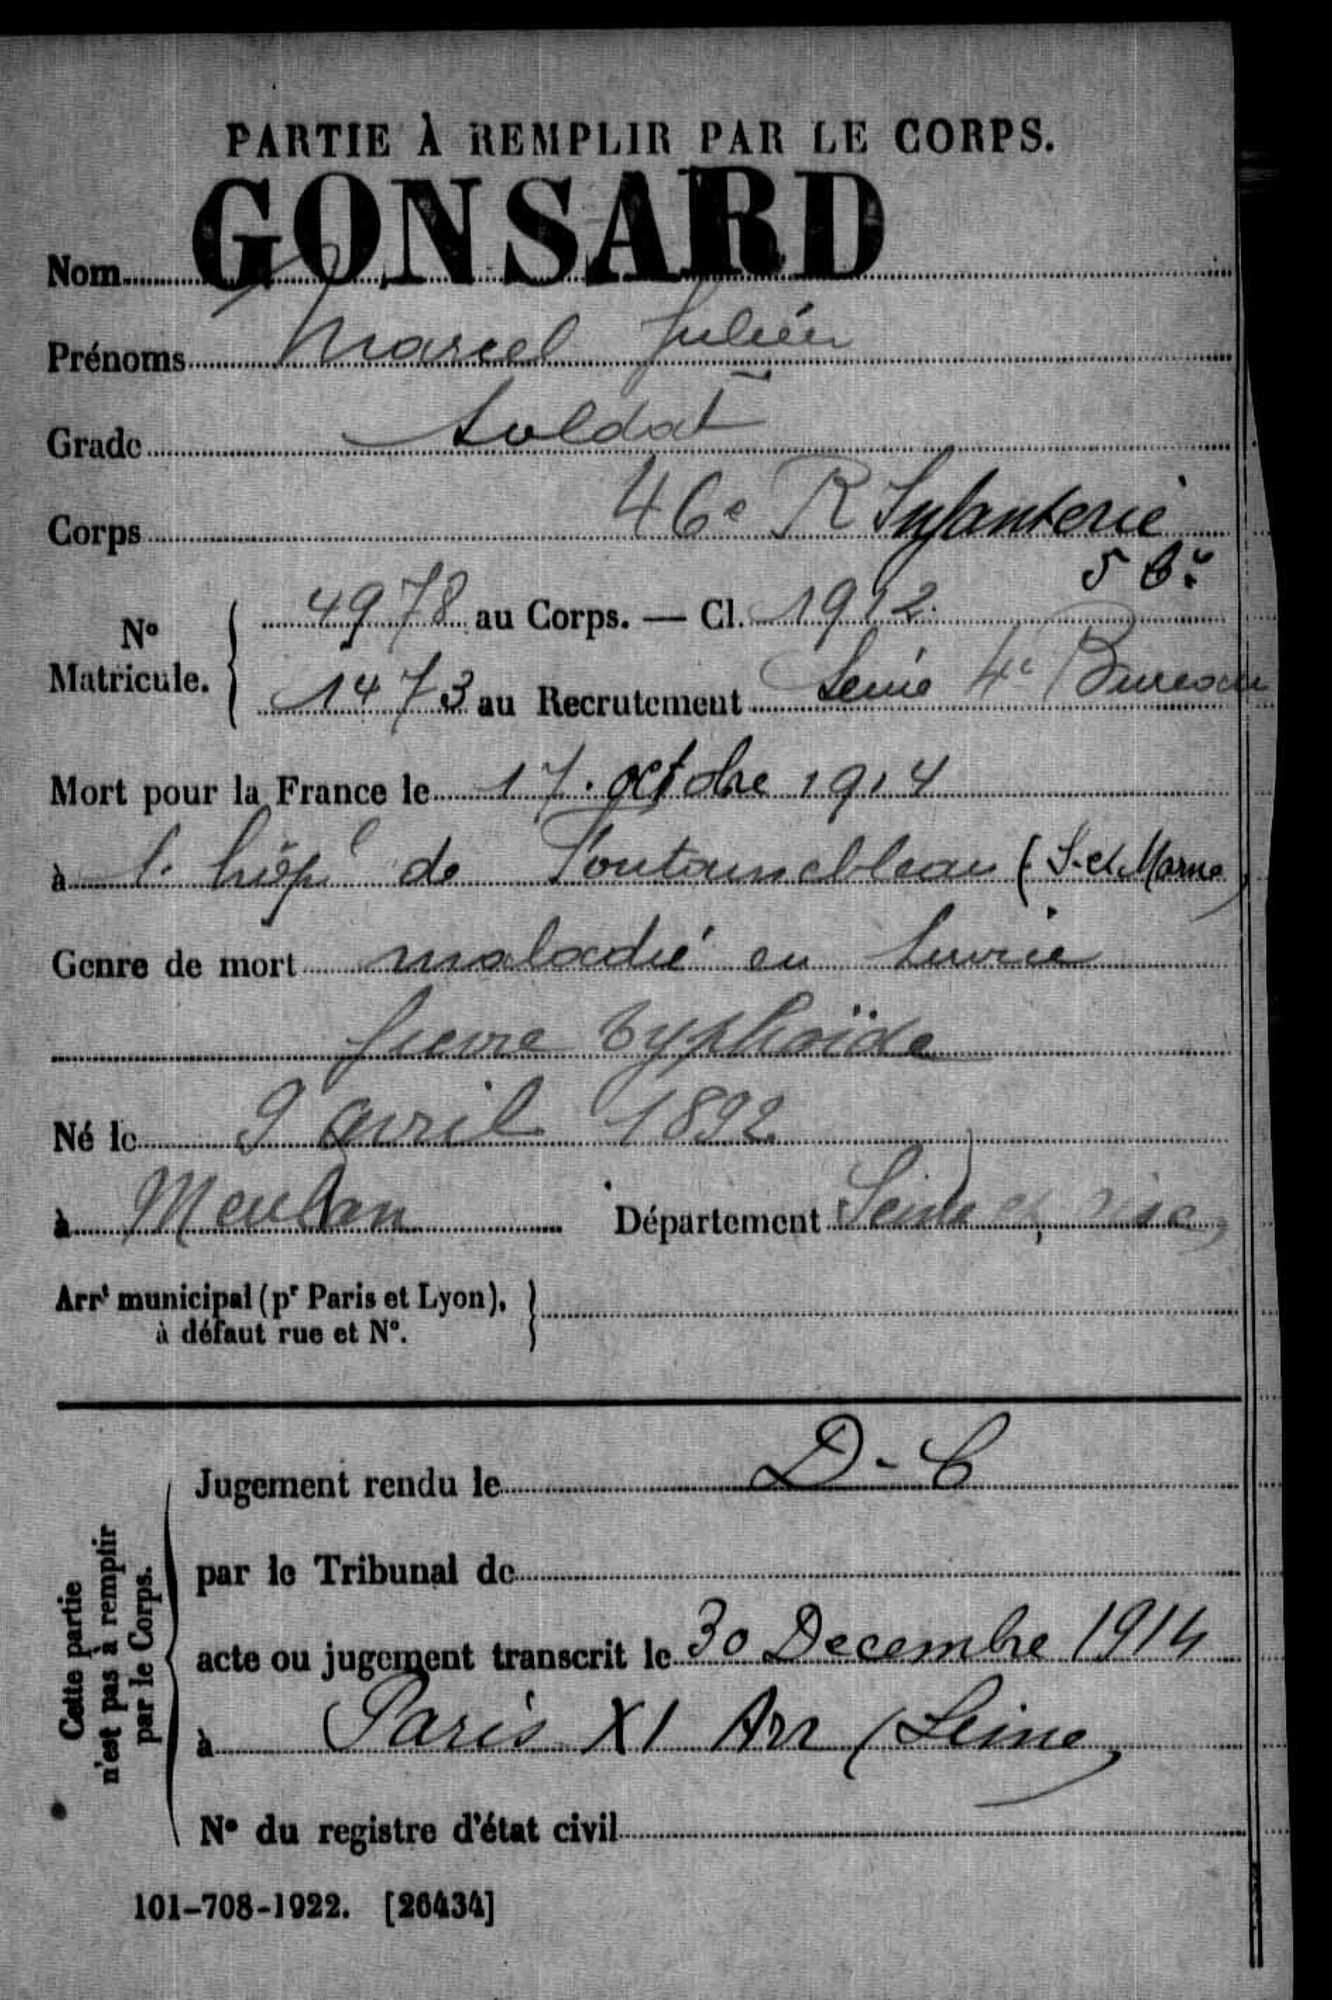 PARTIE À REMPLIR PAR LE CORPS.
Nom GONSARD
Prénoms Marcel Julien
Grade Soldat
Corps 46e R Infanterie
5 Bu
No Matricule. 4978 au Corps. — Cl. 1912.
1473 au Recrutement Seine 4e Bureau
Mort pour la France le 17 octobre 1914
à l. hôpl de Fontainebleau (S-et-Marne)
Genre de mort maladie en service
fievre typhoïde
Né le 9 avril 1892
à Meulan Département Seine et Oise
Arrt municipal (pr Paris et Lyon),
à défaut rue et No.
Cette partie
n'est pas à remplir
par le Corps.
Jugement rendu le D-C
par le Tribunal de
acte ou jugement transcrit le 30 Decembre 1914
à Paris XI Arr (Seine)
No du registre d'état civil
101-708-1922. [26434]